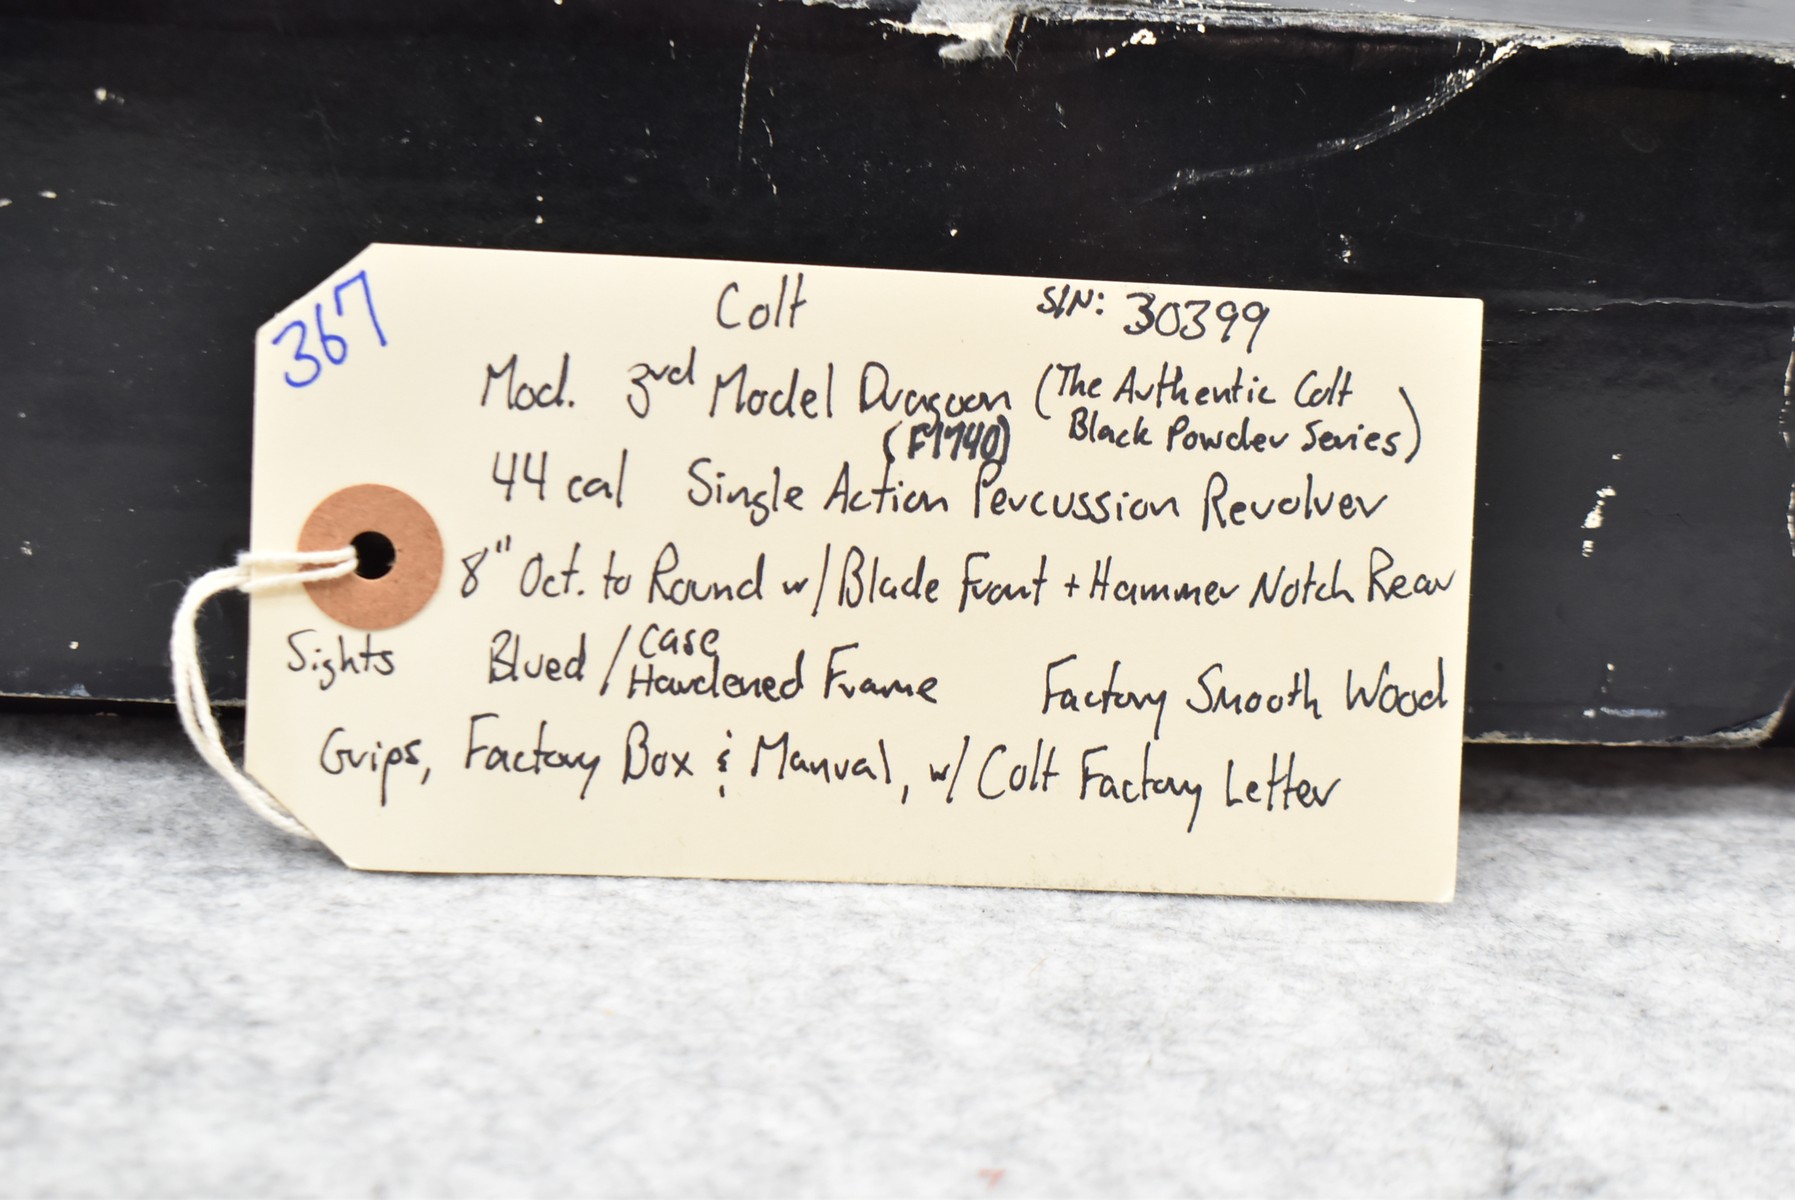 367
Colt S/N: 30399
Mod. 3rd Model Dragoon (The Authentic Colt
Black Powder Series)
(F1740)
44 cal Single Action Percussion Revolver
8" Oct. to Round w/ Blade Front + Hammer Notch Rear
Sights Blued / Case Hardened Frame Factory Smooth Wood
Grips, Factory Box & Manual, w/ Colt Factory Letter